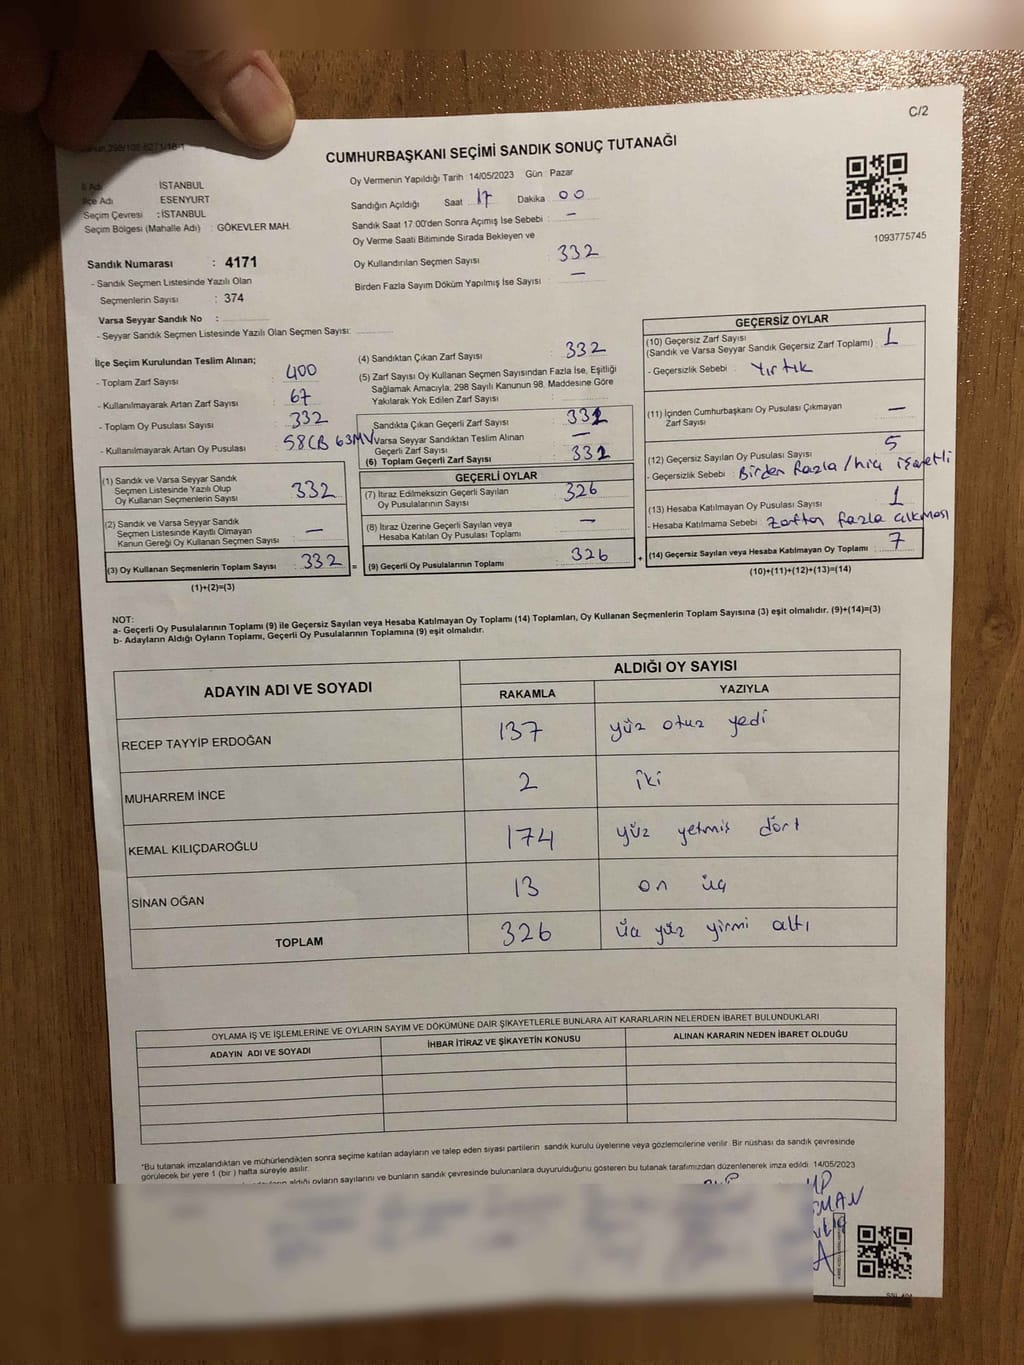 C/2
CUMHURBAŞKANI SEÇİMİ SANDIK SONUÇ TUTANAĞI
İl Adı İSTANBUL
İlçe Adı ESENYURT
Seçim Çevresi : İSTANBUL
Seçim Bölgesi (Mahalle Adı) : GÖKEVLER MAH.
Sandık Numarası : 4171
- Sandık Seçmen Listesinde Yazılı Olan
Seçmenlerin Sayısı : 374
Varsa Seyyar Sandık No :
- Seyyar Sandık Seçmen Listesinde Yazılı Olan Seçmen Sayısı:
Oy Vermenin Yapıldığı Tarih 14/05/2023 Gün Pazar
Sandığın Açıldığı Saat 17 Dakika 00
Sandık Saat 17:00'den Sonra Açımış İse Sebebi : —
Oy Verme Saati Bitiminde Sırada Bekleyen ve
Oy Kullandırılan Seçmen Sayısı : 332
Birden Fazla Sayım Döküm Yapılmış İse Sayısı : —
1093775745
İlçe Seçim Kurulundan Teslim Alınan;
- Toplam Zarf Sayısı : 400
- Kullanılmayarak Artan Zarf Sayısı : 67
- Toplam Oy Pusulası Sayısı : 332
- Kullanılmayarak Artan Oy Pusulası : 58CB 63MV
(1) Sandık ve Varsa Seyyar Sandık
Seçmen Listesinde Yazılı Olup
Oy Kullanan Seçmenlerin Sayısı : 332
(2) Sandık ve Varsa Seyyar Sandık
Seçmen Listesinde Kayıtlı Olmayan
Kanun Gereği Oy Kullanan Seçmen Sayısı : —
(3) Oy Kullanan Seçmenlerin Toplam Sayısı : 332 =
(1)+(2)=(3)
(4) Sandıktan Çıkan Zarf Sayısı : 332
(5) Zarf Sayısı Oy Kullanan Seçmen Sayısından Fazla İse, Eşitliği
Sağlamak Amacıyla, 298 Sayılı Kanunun 98. Maddesine Göre
Yakılarak Yok Edilen Zarf Sayısı :
Sandıkta Çıkan Geçerli Zarf Sayısı : 331
Varsa Seyyar Sandıktan Teslim Alınan
Geçerli Zarf Sayısı : —
(6) Toplam Geçerli Zarf Sayısı : 331
GEÇERLİ OYLAR
(7) İtiraz Edilmeksizin Geçerli Sayılan
Oy Pusulalarının Sayısı : 326
(8) İtiraz Üzerine Geçerli Sayılan veya
Hesaba Katılan Oy Pusulası Toplamı : —
(9) Geçerli Oy Pusulalarının Toplamı : 326 +
GEÇERSİZ OYLAR
(10) Geçersiz Zarf Sayısı
(Sandık ve Varsa Seyyar Sandık Geçersiz Zarf Toplamı) : 1
- Geçersizlik Sebebi : Yırtık
(11) İçinden Cumhurbaşkanı Oy Pusulası Çıkmayan
Zarf Sayısı : —
(12) Geçersiz Sayılan Oy Pusulası Sayısı : 5
- Geçersizlik Sebebi : Birden fazla/hiç işaretli
(13) Hesaba Katılmayan Oy Pusulası Sayısı : 1
- Hesaba Katılmama Sebebi : Zarftan fazla çıkması
(14) Geçersiz Sayılan veya Hesaba Katılmayan Oy Toplamı : 7
(10)+(11)+(12)+(13)=(14)
NOT:
a- Geçerli Oy Pusulalarının Toplamı (9) ile Geçersiz Sayılan veya Hesaba Katılmayan Oy Toplamı (14) Toplamları, Oy Kullanan Seçmenlerin Toplam Sayısına (3) eşit olmalıdır. (9)+(14)=(3)
b- Adayların Aldığı Oyların Toplamı, Geçerli Oy Pusulalarının Toplamına (9) eşit olmalıdır.
ADAYIN ADI VE SOYADI ALDIĞI OY SAYISI
RAKAMLA YAZIYLA
RECEP TAYYİP ERDOĞAN 137 yüz otuz yedi
MUHARREM İNCE 2 iki
KEMAL KILIÇDAROĞLU 174 yüz yetmiş dört
SİNAN OĞAN 13 on üç
TOPLAM 326 üç yüz yirmi altı
OYLAMA İŞ VE İŞLEMLERİNE VE OYLARIN SAYIM VE DÖKÜMÜNE DAİR ŞİKAYETLERLE BUNLARA AİT KARARLARIN NELERDEN İBARET BULUNDUKLARI
ADAYIN ADI VE SOYADI İHBAR İTİRAZ VE ŞİKAYETİN KONUSU ALINAN KARARIN NEDEN İBARET OLDUĞU
*Bu tutanak imzalandıktan ve mühürlendikten sonra seçime katılan adayların ve talep eden siyasi partilerin sandık kurulu üyelerine veya gözlemcilerine verilir. Bir nüshası da sandık çevresinde
görülecek bir yere 1 (bir) hafta süreyle asılır.
aldığı oyların sayılarını ve bunların sandık çevresinde bulunanlara duyurulduğunu gösteren bu tutanak tarafımızdan düzenlenerek imza edildi. 14/05/2023